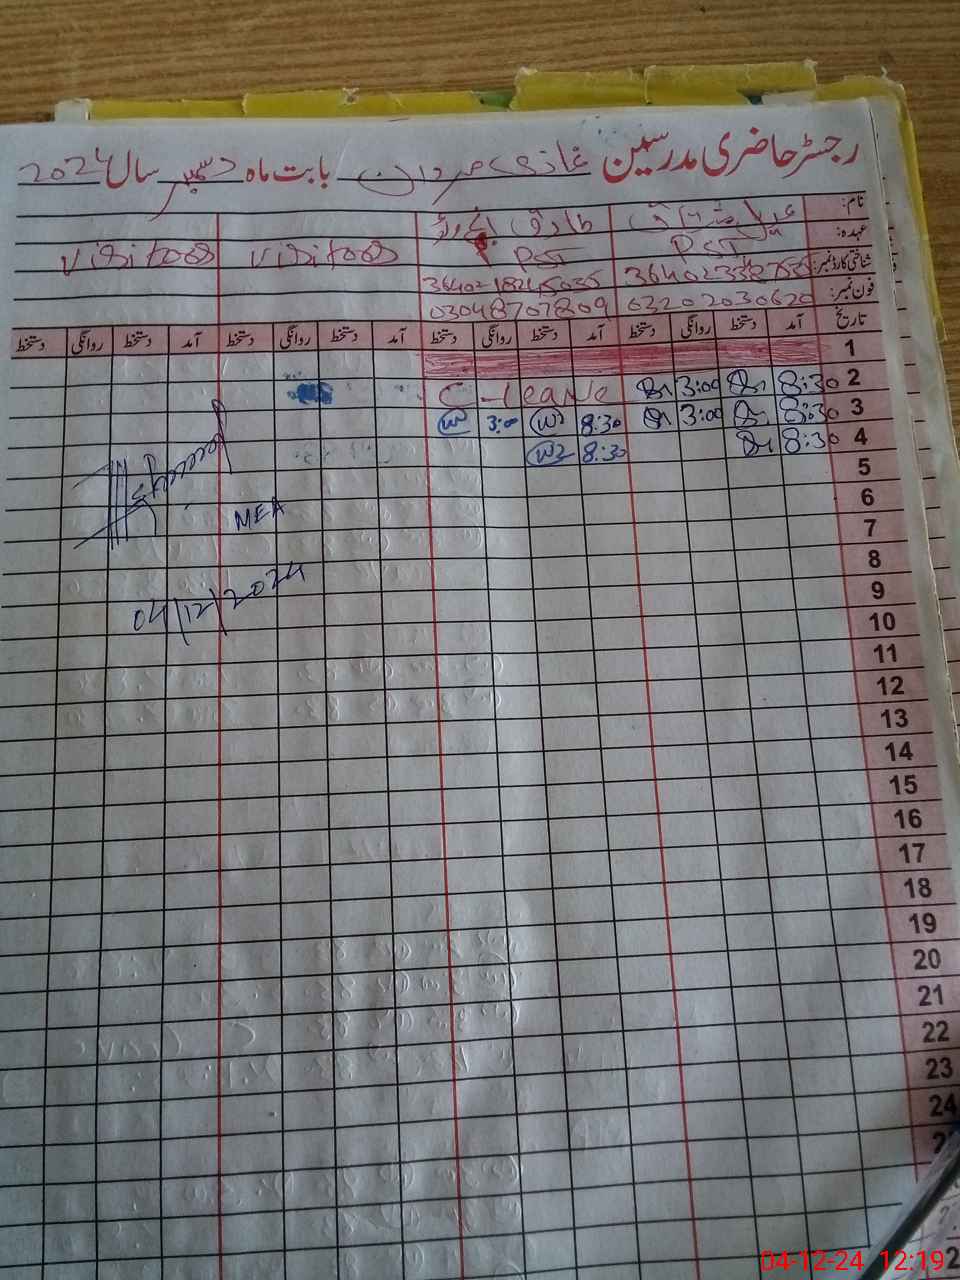 رجسٹر حاضری مدرسین غازی مردان بابت ماہ دسمبر سال 2024
نام: طارق
عہدہ: PST PST visitors visitors
شناختی کارڈ نمبر:
فون نمبر: 03202030620 03048707809
تاریخ آمد دستخط روانگی دستخط آمد دستخط روانگی دستخط آمد دستخط روانگی دستخط آمد دستخط روانگی دستخط
1
2 8:30 3:00 C-leave
3 8:30 3:00 8:30 3:00
4 8:30 8:30
5
6
MEA
7
8
9
04/12/2024
10
11
12
13
14
15
16
17
18
19
20
21
22
23
24
04-12-24 12:19